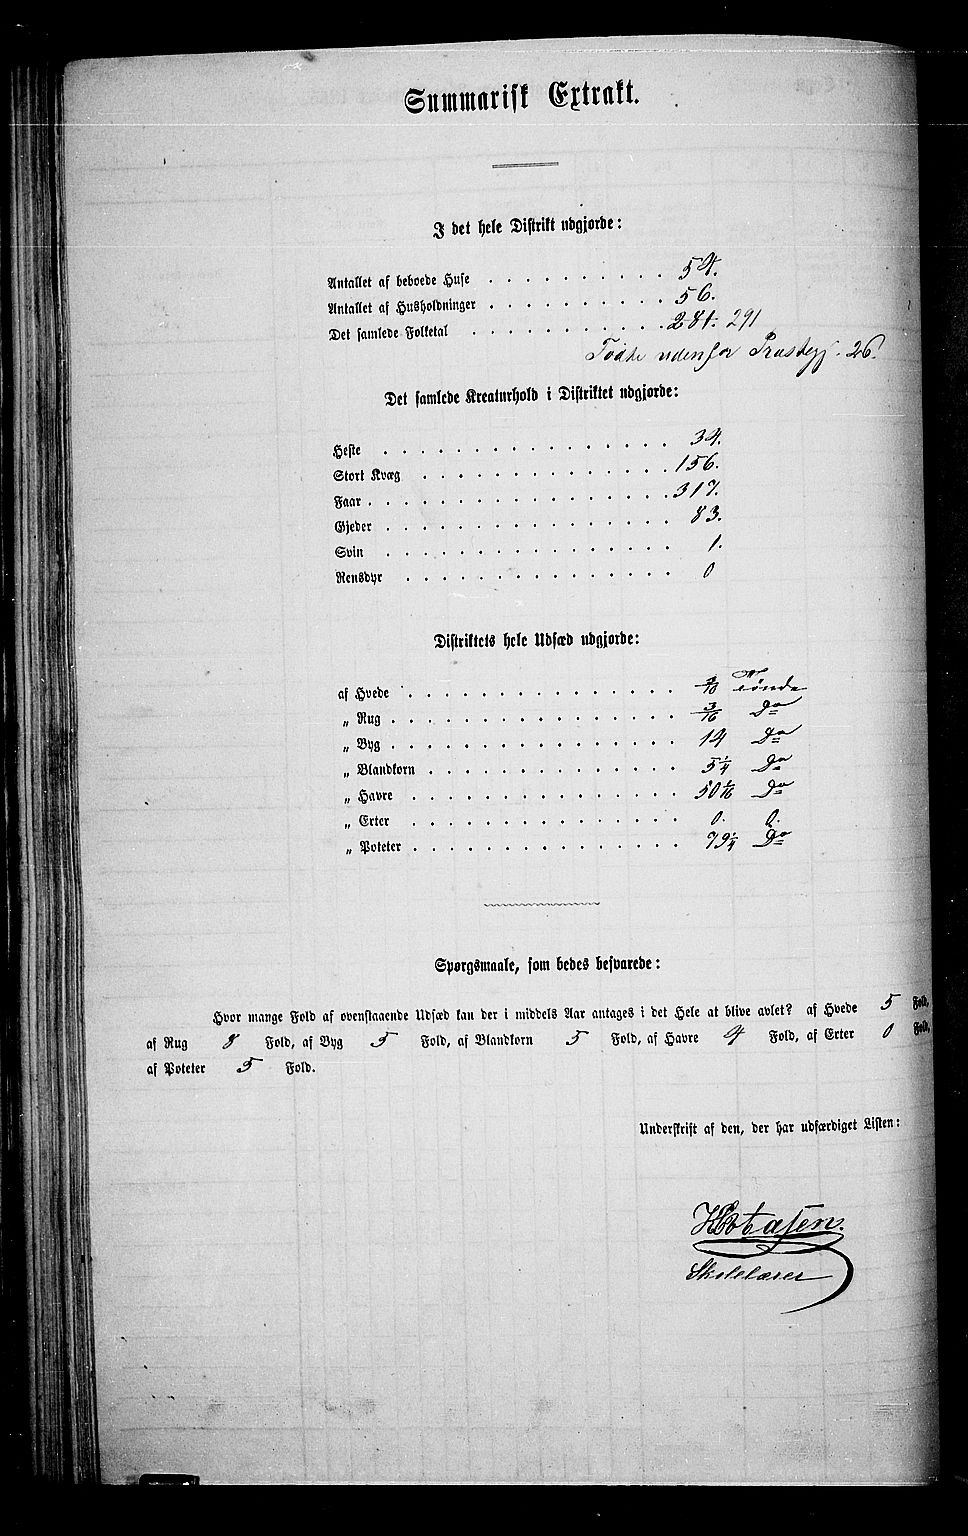 Summarisk Extrakt.
I det hele Distrikt udgjorde:
Antallet af beboede Huse . . . . . . . . . . 54.
Antallet af Husholdninger . . . . . . . . . . 56.
Det samlede Folketal . . . . . . . . . . . 281. 291
Fødte udenfor Præstegj. 26.
Det samlede Kreaturhold i Distriktet udgjorde:
Heste . . . . . . . . . . . . . . . . 34.
Stort Kvæg . . . . . . . . . . . . . . 156.
Faar . . . . . . . . . . . . . . . . . 317.
Gjeder . . . . . . . . . . . . . . . . 83.
Svin . . . . . . . . . . . . . . . . 1.
Rensdyr . . . . . . . . . . . . . . . 0
Distriktets hele Udsæd udgjorde:
af Hvede . . . . . . . . . . . . . . . Tønde
„ Rug . . . . . . . . . . . . . . . . 3/16 Do
„ Byg . . . . . . . . . . . . . . . . 14 Do
„ Blandkorn . . . . . . . . . . . . . . 5 1/4 Do
„ Havre . . . . . . . . . . . . . . . 50 1/16 Do
„ Erter . . . . . . . . . . . . . . . 0. 0.
„ Poteter . . . . . . . . . . . . . . . 79 1/4 Do
Spørgsmaale, som bedes besvarede:
Hvor mange Fold af ovenstaaende Udsæd kan der i middels Aar antages i det Hele at blive avlet? af Hvede 5 Fold,
af Rug 8 Fold, af Byg 5 Fold, af Blandkorn 5 Fold, af Havre 4 Fold, af Erter 0 Fold,
af Poteter 5 Fold.
Underskrift af den, der har udfærdiget Listen:
Skolelærer